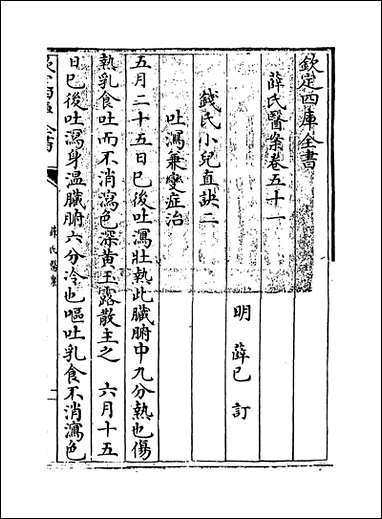 欽定四庫全書
薛氏醫案卷五十一
明 薛己 訂
錢氏小兒直訣二
吐瀉兼變症治
五月二十五日已後吐瀉壯熱此臟腑中九分熱也傷
熱乳食吐而不消瀉色深黄玉露散主之 六月十五
日已後吐瀉身温臟腑六分冷也嘔吐乳食不消瀉色
薛氏醫案